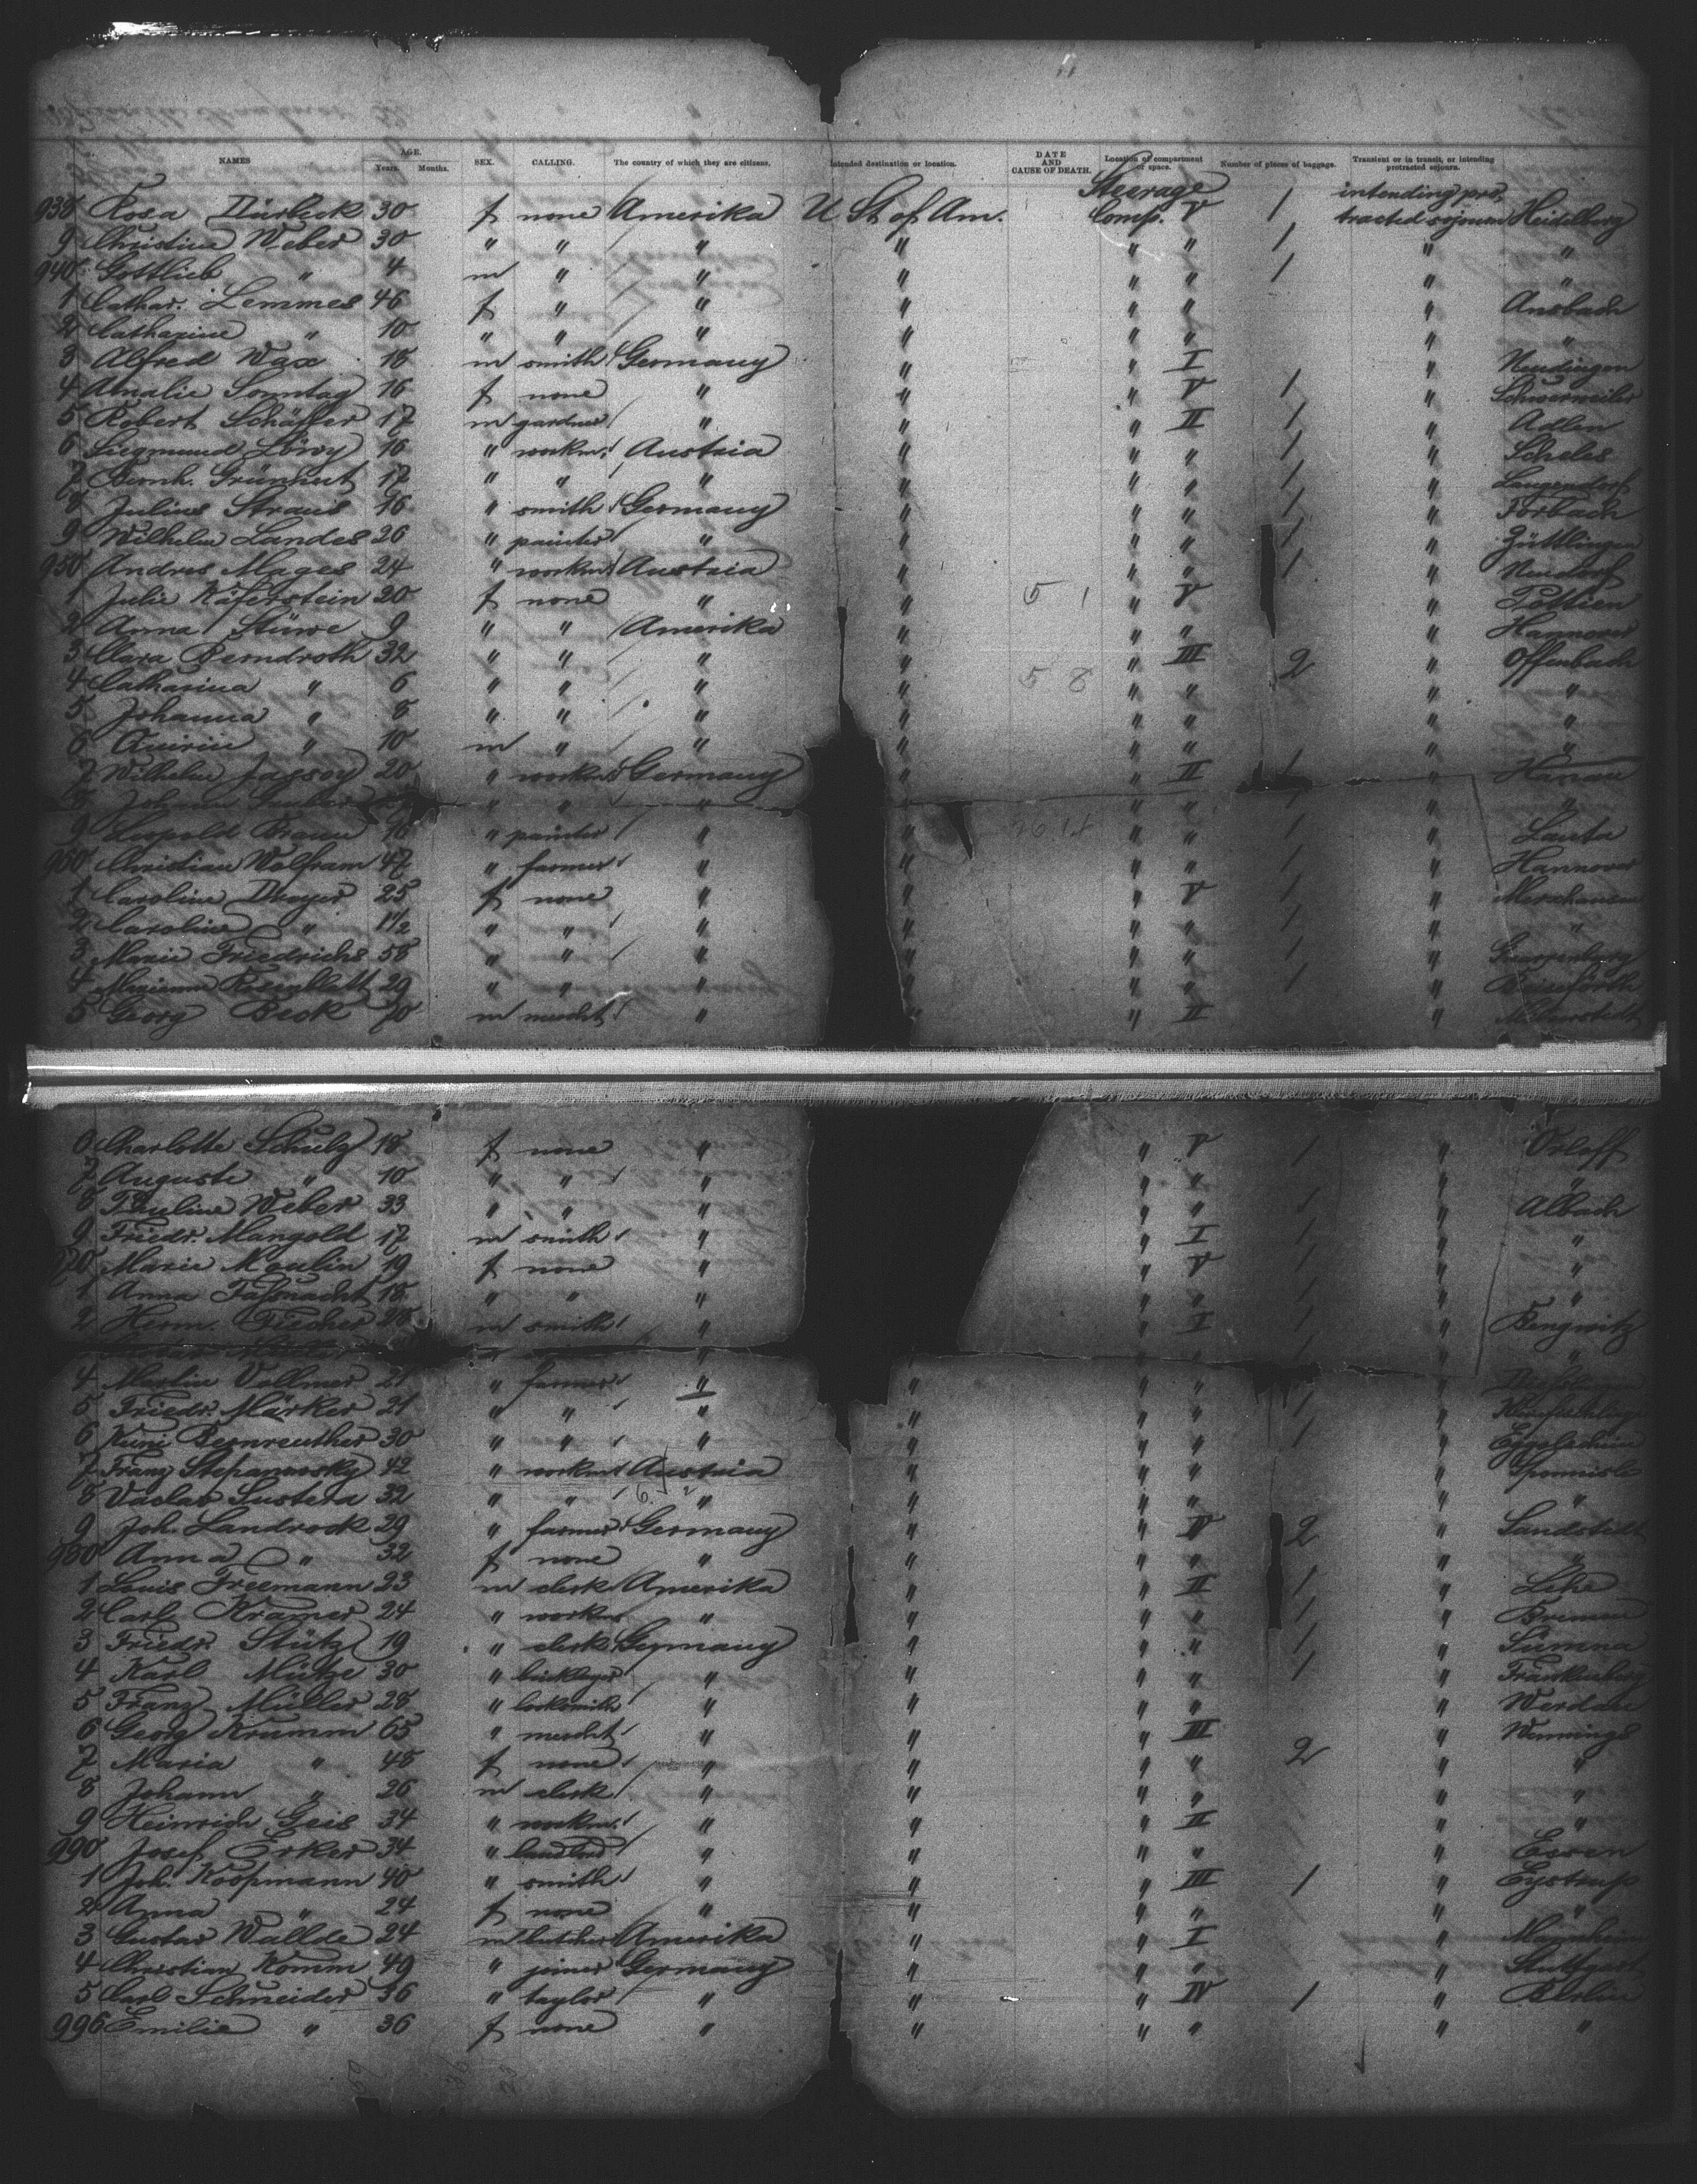 NAMES AGE. Years. Months. SEX. CALLING. The country of which they are citizens. Intended destination or location. DATE AND CAUSE OF DEATH. Location of compartment of space. Number of pieces of baggage. Transient or in transit, or intending protracted sojourn.
938 Rosa Dürbeck 30 f none Amerika U St of Am. Steerage Comp. V 1 intending pro, tracted sojourn Heidelberg
9 Christine Weber 30 " " " " " " 1 " "
940 Gottlieb " 4 m " " " " " 1 " "
1 Cathar. Lemmes 46 f " " " " " " Ansbach
2 Catharine " 10 " " " " " " " "
3 Alfred Wax 18 m smith Germany " " I " Neudingen
4 Amalie Sonntag 16 f none " " " V 1 " Schwerweiler
5 Robert Schäffer 17 m gardner " " " II 1 " Adlen
6 Siegmund Löwy 16 " workm. Austria " " " 1 " Scheles
7 Bernh. Grünhut 17 " " " " " " 1 " Langendorf
8 Julius Straus 16 " smith Germany " " " 1 " Forbach
9 Wilhelm Landes 26 " painter " " " " 1 " Züttlingen
950 Andres Mages 24 " workm Austria " " " 1 " Neudorf
1 Julie Käferstein 20 f none " " 5 1 " V " Pottien
2 Anna Stüwe 9 " " Amerika " " " " Hannover
3 Clara Berndroth 32 " " " " " III 2 " Offenbach
4 Catharina " 6 " " " " 5 8 " " " "
5 Johanna " 8 " " " " " " " "
6 Quirin " 10 m " " " " " " "
7 Wilhelm Jagsoy 20 " workm Germany " " II 1 " Hanau
8 Johann " " " " " " 1 " "
9 Leopold Braun 16 " painter " " " " 1 " Lauta
960 Christian Wolfram 47 " farmer " " " " 1 " Hannover
1 Caroline Dreyer 25 f none " " " V 1 " Merxhausen
2 Caroline " 1½ " " " " " " 1 " "
3 Marie Friedrichs 58 " " " " " " 1 "
4 Miriam Rosenblatt 29 " " " " " " 1 " Beiseförth
5 Georg Beck 70 m mercht " " " II "
6 Charlotte Schulz 18 f none " " V 1 " Orloff
7 Auguste " 10 " " " " " " "
8 Pauline Weber 33 " " " " " 1 " Albach
9 Friedr. Mangold 17 m smith " " I 1 " "
970 Marie Moulin 19 f none " " V 1 " "
1 Anna Faßnacht 18 " " " " " 1 " "
2 Herm. Fischer 28 m smith " " I 1 " Bengwitz
4 Martin Vollmer 21 " farmer " " " " 1 "
5 Friedr. Märker 21 " " " " " " 1 "
6 Kuni Bernreuther 30 " " " " " " 1 "
7 Franz Stepanowsky 42 " workm Austria " " " "
8 Vaclav Sustera 32 " " " " " " " "
9 Joh. Landrock 29 " farmer Germany " " IV 2 " Sandstedt
980 Anna " 32 f none " " " " " "
1 Louis Freemann 23 m clerk Amerika " " II 1 " Lehe
2 Carl Kramer 24 " workm " " " " 1 " Bremen
3 Friedr. Stütz 19 " clerk Germany " " " 1 "
4 Karl Mütze 30 " bricklayer " " " " 1 " Frankenberg
5 Franz Müller 28 " locksmith " " " " " Werdau
6 Georg Krumm 65 " mercht " " " III " Wennings
7 Maria " 48 f none " " " " 2 " "
8 Johann " 26 m clerk " " " " " "
9 Heinrich Geis 34 " workm. " " " II " "
990 Josef Erker 34 " landlord " " " " " Essen
1 Joh. Koopmann 40 " smith " " " III 1 " Eystrup
2 Anna " 24 f none " " " " " "
3 Gustav Wallde 24 m butcher Amerika " " I " Mannheim
4 Christian Komm 49 " joiner Germany " " " " Stuttgart
5 Carl Schneider 36 " taylor " " " IV 1 " Berlin
996 Emilie " 36 f none " " " " " "